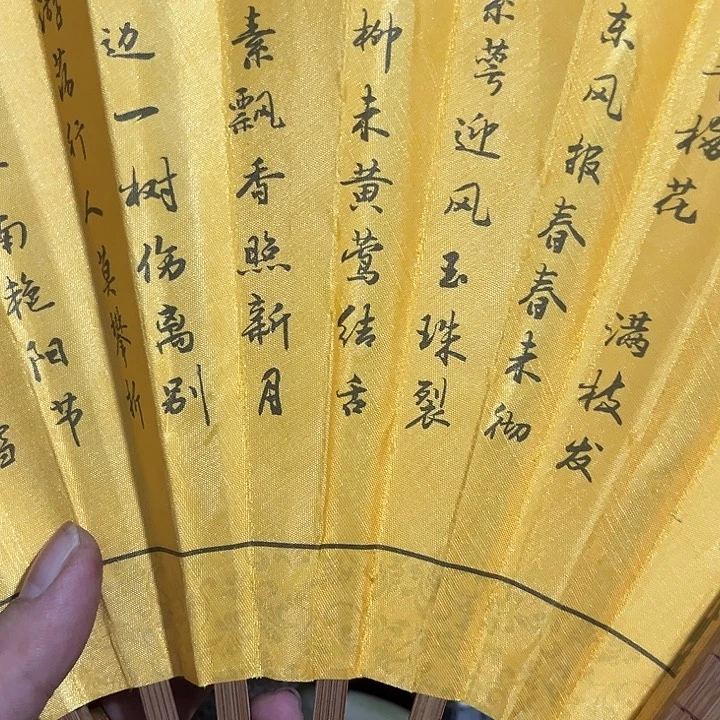 梅花 满枝发
东风报春春未彻
萼迎风玉珠裂
柳未黄莺结舌
素飘香照新月
边一树伤离别
荡行人莫攀折
南艳阳节